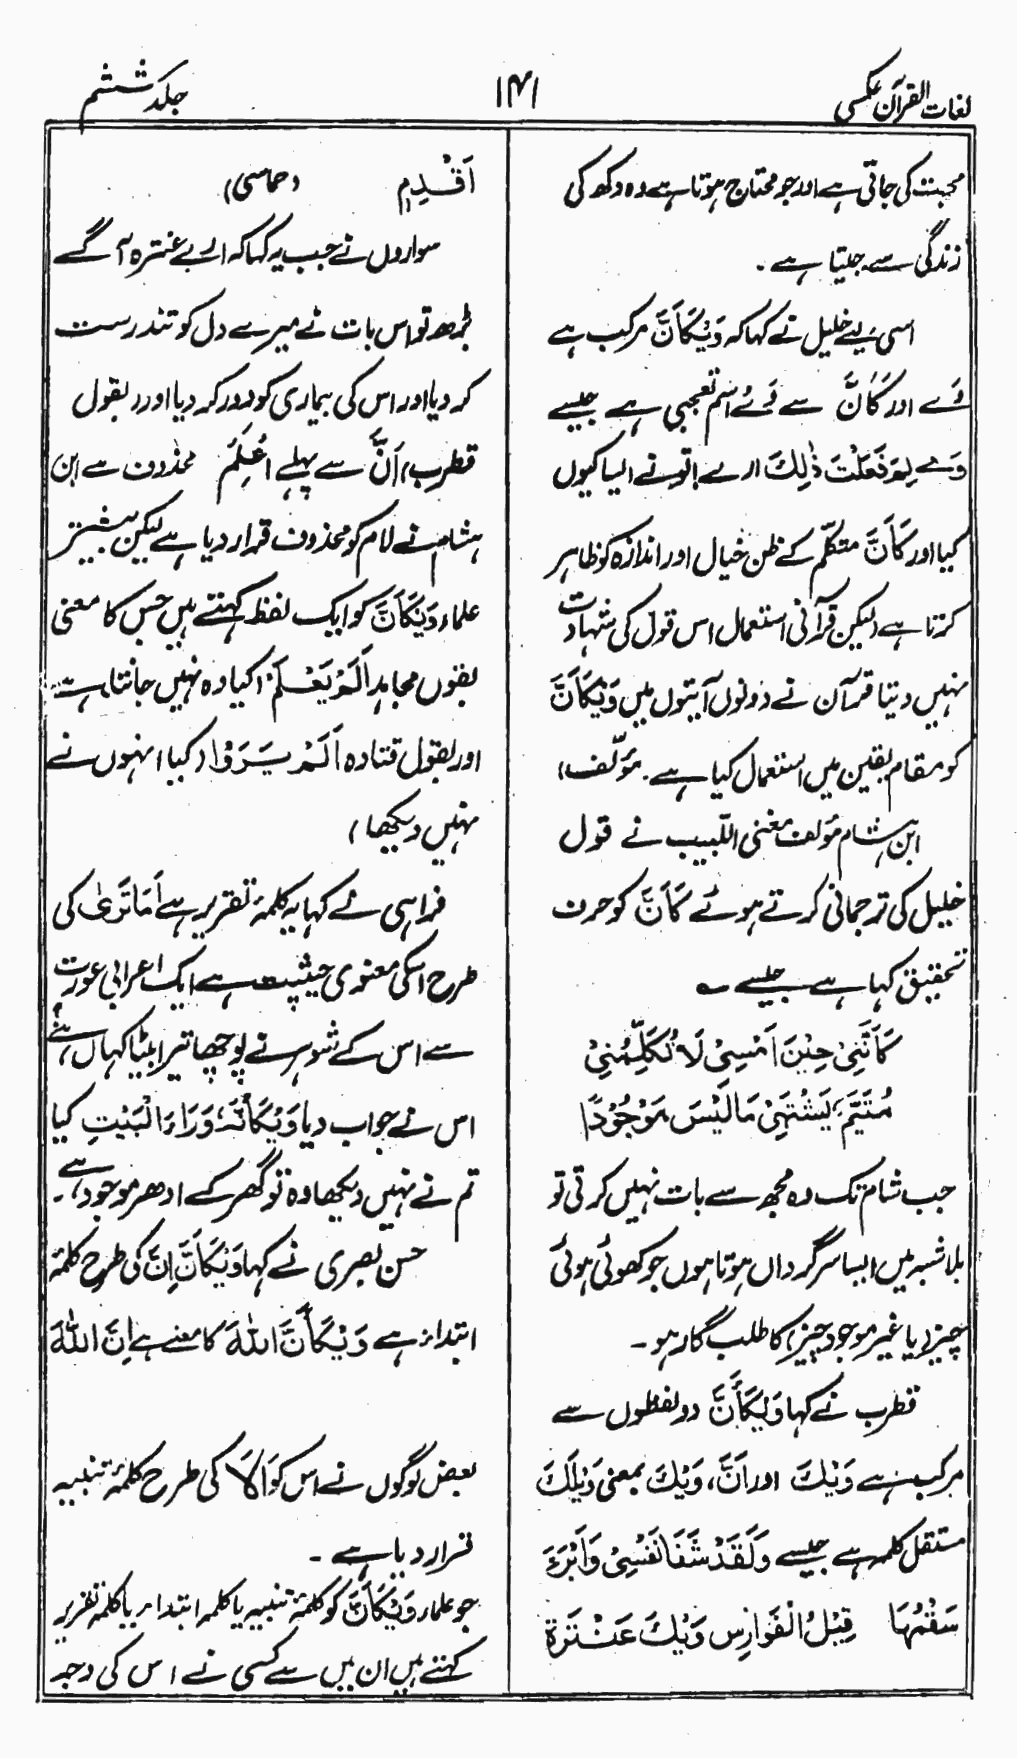 لغات القرآن عکسی
۱۴۱
جلد ششم
محبت کی جاتی ہے اور جو محتاج ہوتا ہے وہ دکھ کی
زندگی سے جیتا ہے۔
اسی لیے خلیل نے کہا کہ وَیْکَاَنَّ مرکب ہے
وَے اور کَاَنَّ سے وَےْ اسم تعجبی ہے جیسے
وَے لِمَ فَعَلْتَ ذٰلِکَ ارے! تو نے ایسا کیوں
کیا اور کَاَنَّ متکلّم کے ظن خیال اور اندازہ کو ظاہر
کرتا ہے (لیکن قرآنی استعمال اس قول کی شہادت
نہیں دیتا قرآن نے دونوں آیتوں میں وَیْکَاَنَّ
کو مقام یقین میں استعمال کیا ہے۔ مؤلّف)
ابن ہشام مؤلف مغنی اللبیب نے قول
خلیل کی ترجمانی کرتے ہوئے کَاَنَّ کو حرف
تحقیق کہا ہے جیسے ؎
کَاَنَّنِیْ حِیْنَ اَمْسِیْ لَا تُکَلِّمُنِیْ
مُتَیَّمٌ یَشْتَہِیْ مَا لَیْسَ مَوْجُوْدًا
جب شام تک وہ مجھ سے بات نہیں کرتی تو
بلا شبہ میں ایسا سرگرداں ہوتا ہوں جو کھوئی ہوئی
چیز (یا غیر موجود چیز) کا طلب گار ہو۔
قطرب نے کہا وَیْکَاَنَّ دو لفظوں سے
مرکب ہے وَیْکَ اور اَنَّ، وَیْکَ بمعنی وَیْلَکَ
مستقل کلمہ ہے جیسے وَلَقَدْ شَفَا نَفْسِیْ وَاَبْرَءَ
سَقْمُہَا قِیْلُ الْفَوَارِسِ وَیْکَ عَنْتَرَۃ
اَقْدِمِ (حماسی)
سواروں نے جب یہ کہا کہ ارے عنترہ آگے
بڑھ تو اس بات نے میرے دل کو تندرست
کر دیا اور اس کی بیماری کو دور کر دیا اور (بقول
قطرب) اَنَّ سے پہلے اَعْلَمُ محذوف ہے ابن
ہشام نے لام کو محذوف قرار دیا ہے لیکن بیشتر
علماء وَیْکَاَنَّ کو ایک لفظ کہتے ہیں جس کا معنی
بقول مجاہد اَلَمْ یَعْلَمْ (کیا وہ نہیں جانتا) ہے
اور بقول قتادہ اَلَمْ یَرَوْا (کیا انہوں نے
نہیں دیکھا)
فرا ہی نے کہا یہ کلمۂ تقریر ہے اَمَا تَرٰی کی
طرح اسکی معنوی حیثیت ہے ایک اعرابی عورت
سے اس کے شوہر نے پوچھا تیرا بیٹا کہاں ہے؟
اس نے جواب دیا وَیْکَاَنَّہٗ وَرَاءَ الْبَیْتِ کیا
تم نے نہیں دیکھا وہ تو گھر کے ادھر موجود ہے۔
حسن بصری نے کہا وَیْکَاَنَّ اِنَّ کی طرح کلمۂ
ابتداء ہے وَیْکَاَنَّ اللّٰہَ کا معنے ہے اِنَّ اللّٰہَ
بعض لوگوں نے اس کو اَلَا کی طرح کلمۂ تنبیہ
قرار دیا ہے۔
جو علماء وَیْکَاَنَّ کو کلمۂ تنبیہ یا کلمہ ابتداء یا کلمہ تقریر
کہتے ہیں ان میں سے کسی نے اس کی وجہ